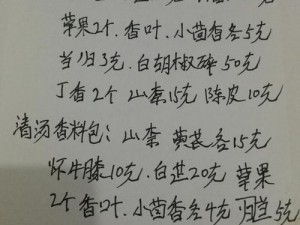 苹果2个.香叶.小茴香各5克
当归3克.白胡椒碎50克
丁香2个 山柰15克 陈皮10克
清汤香料包：山柰 荜茇各15克
怀牛膝10克.白芷20克 苹果
2个香叶.小茴香各4克 归当5克